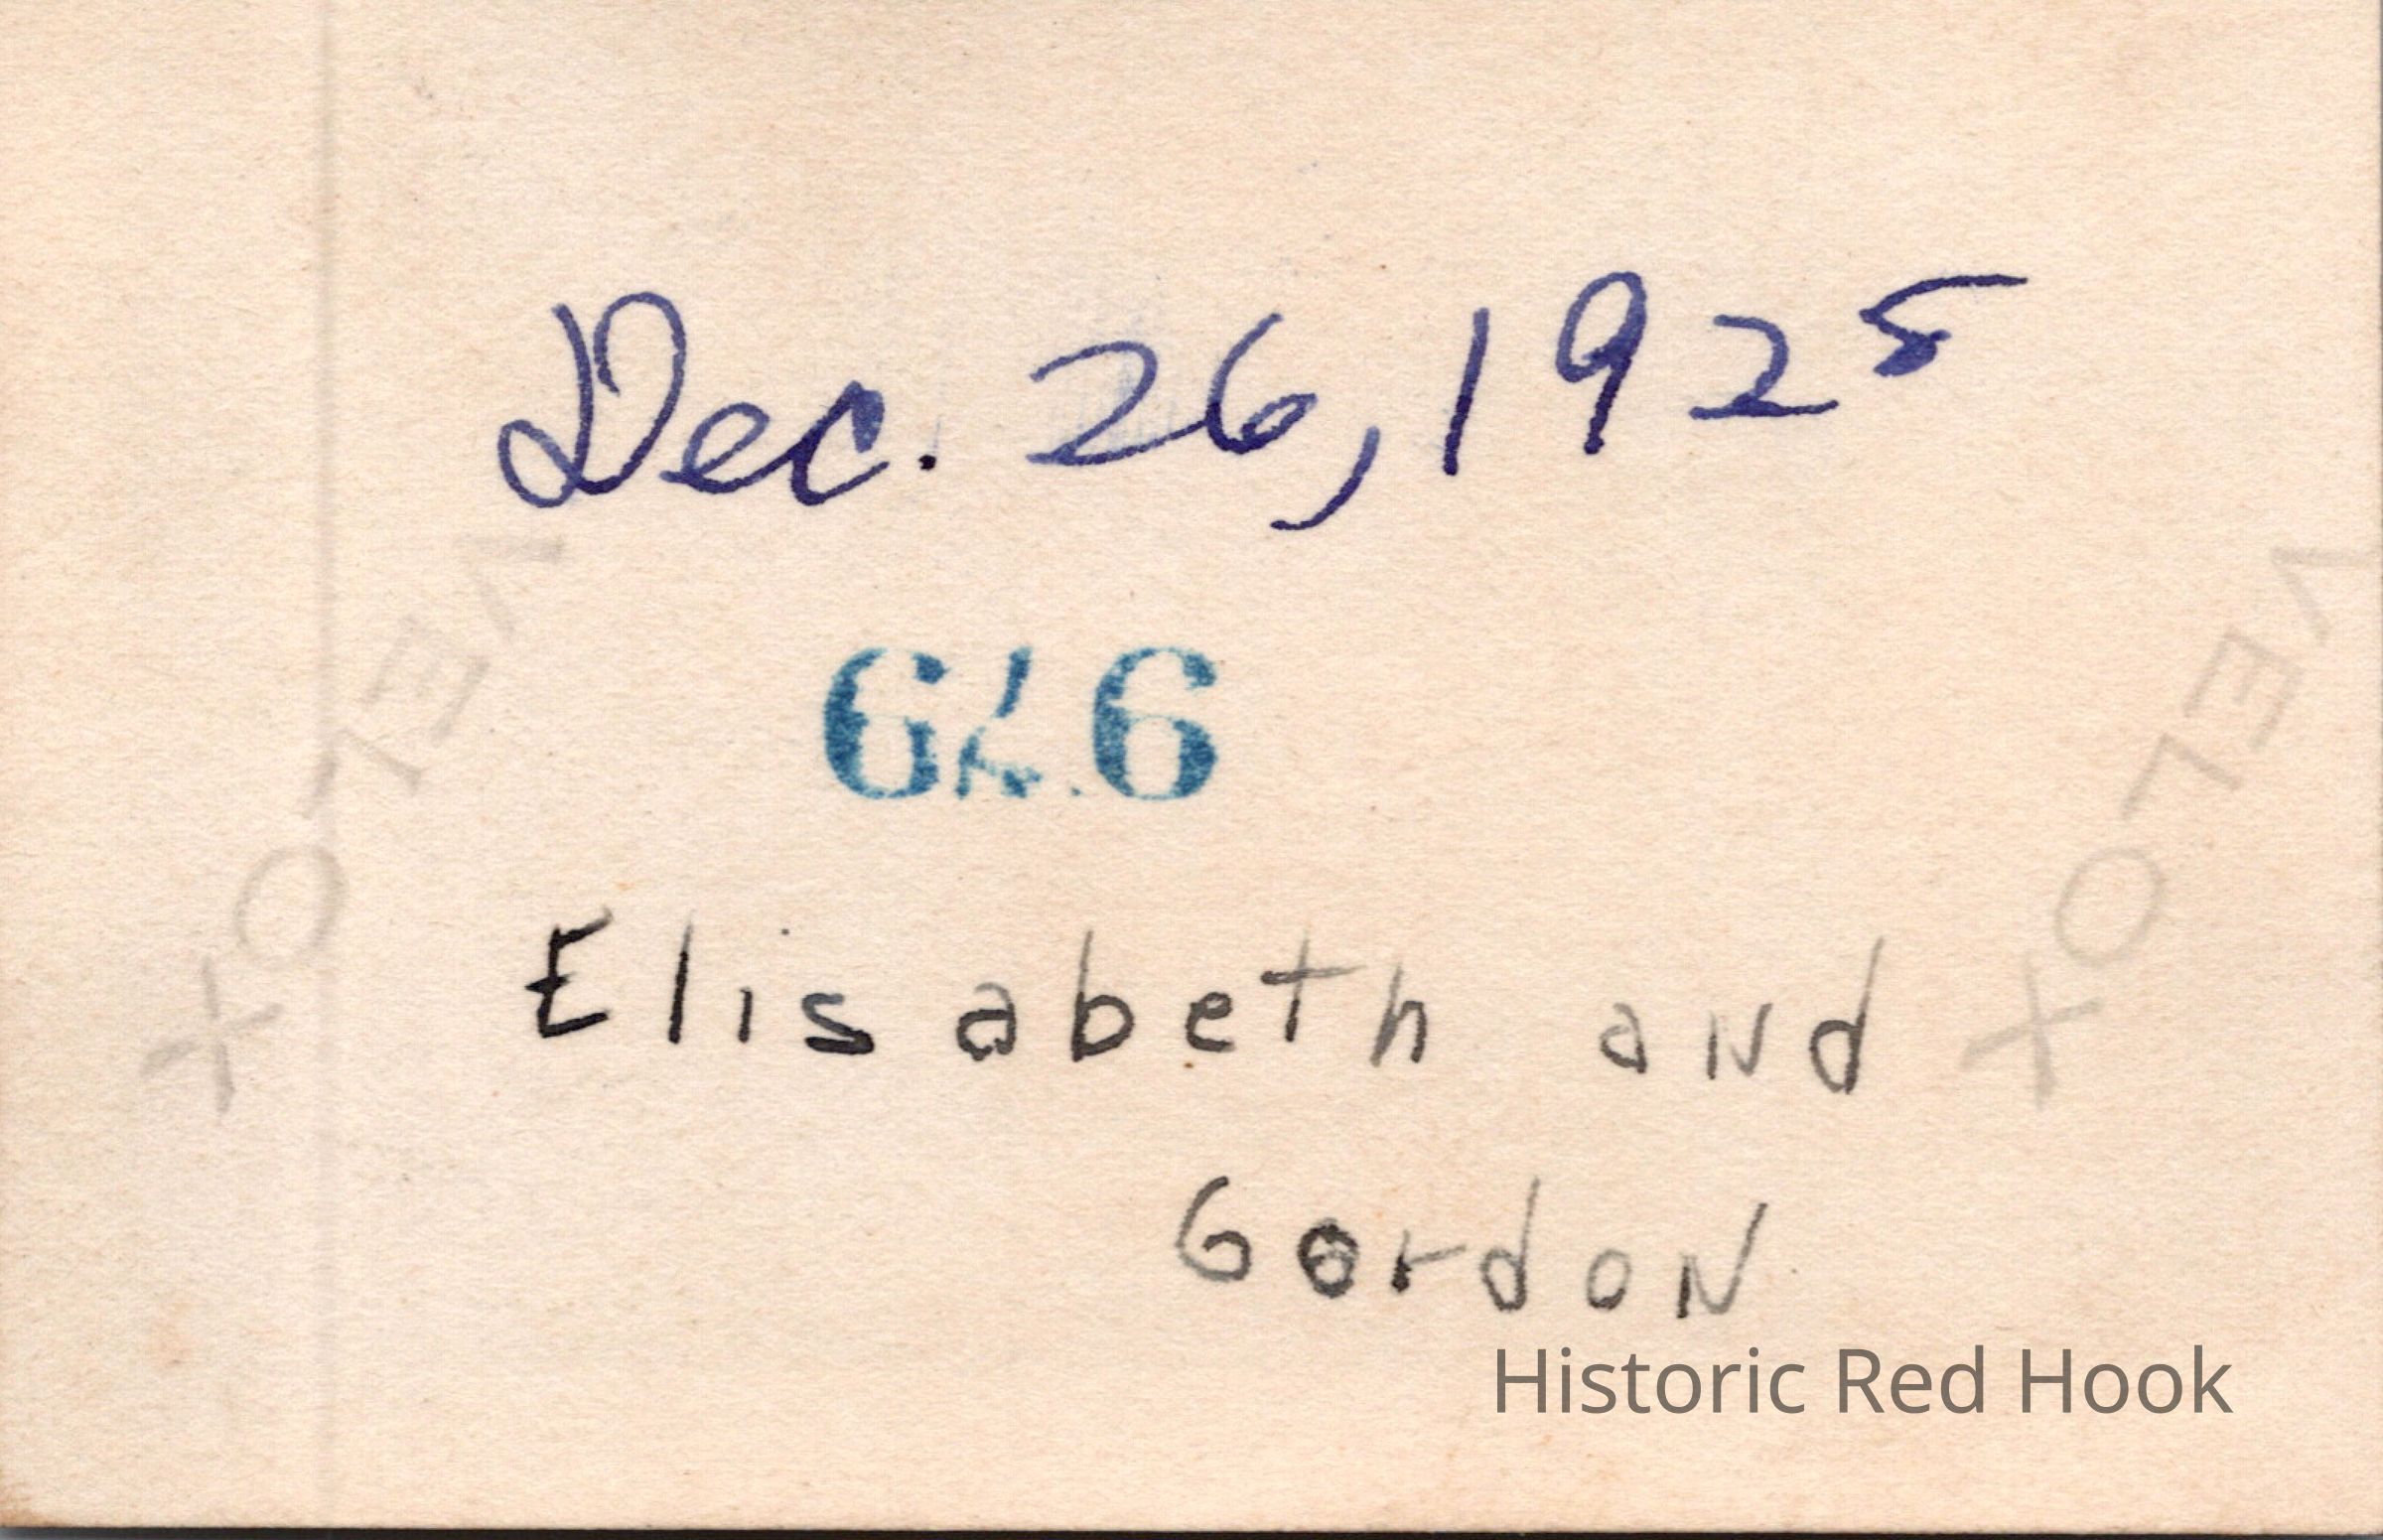 Dec. 26, 1925
VELOX
VELOX
Elisabeth and
Gordon
Historic Red Hook